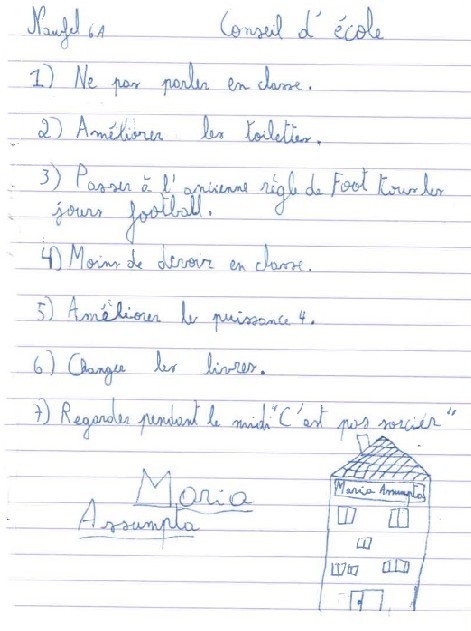 Naufel 6A Conseil d'école
1) Ne pas parler en classe.
2) Améliorer les toilettes.
3) Passer à l'ancienne règle de Foot tous les
jours football.
4) Moins de devoir en classe.
5) Améliorer le puissance 4.
6) Changer les livres.
7) Regarder pendant le midi "C'est pas sorcier"
Maria
Assumpta
Maria Assumpta